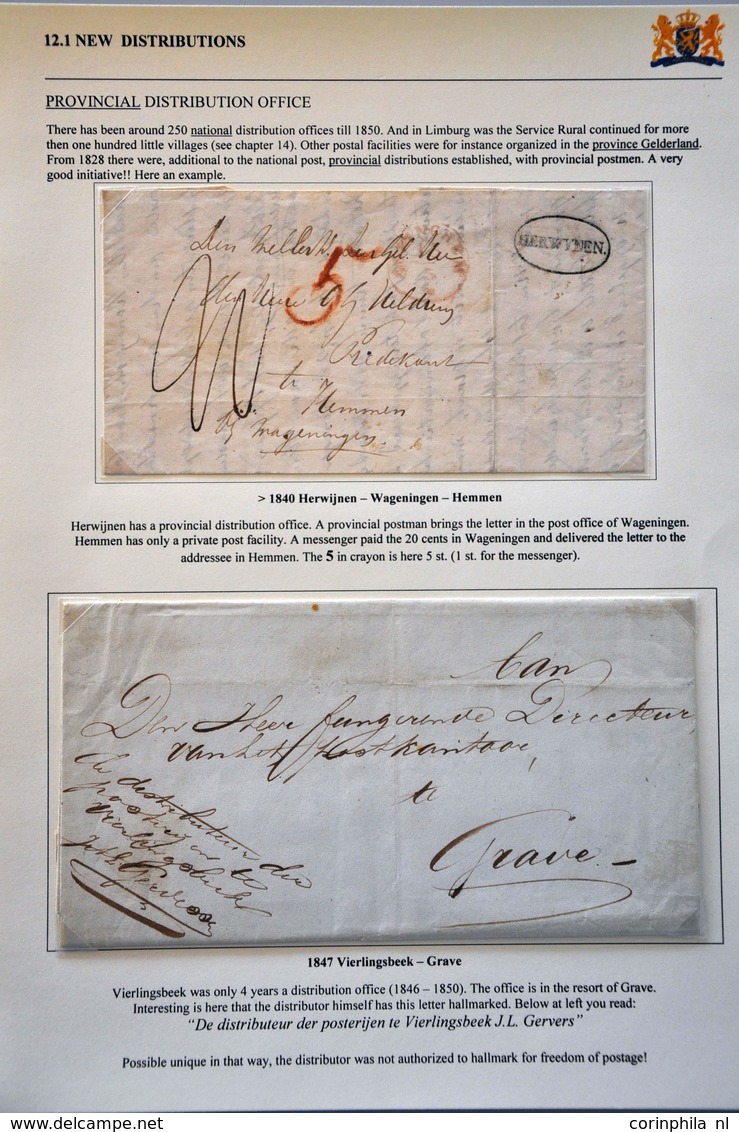 12.1 NEW DISTRIBUTIONS
PROVINCIAL DISTRIBUTION OFFICE
There has been around 250 national distribution offices till 1850. And in Limburg was the Service Rural continued for more
then one hundred little villages (see chapter 14). Other postal facilities were for instance organized in the province Gelderland.
From 1828 there were, additional to the national post, provincial distributions established, with provincial postmen. A very
good initiative!! Here an example.
HERWYNEN.
Den
5
Heldring
Predekant
te
Hemmen
bij Wageningen
> 1840 Herwijnen – Wageningen – Hemmen
Herwijnen has a provincial distribution office. A provincial postman brings the letter in the post office of Wageningen.
Hemmen has only a private post facility. A messenger paid the 20 cents in Wageningen and delivered the letter to the
addressee in Hemmen. The 5 in crayon is here 5 st. (1 st. for the messenger).
Aan
Den Heer fungerende Directeur
van het Postkantoor,
te
Grave
de distributeur der
posterijen te
Vierlingsbeek
1847 Vierlingsbeek – Grave
Vierlingsbeek was only 4 years a distribution office (1846 – 1850). The office is in the resort of Grave.
Interesting is here that the distributor himself has this letter hallmarked. Below at left you read:
"De distributeur der posterijen te Vierlingsbeek J.L. Gervers"
Possible unique in that way, the distributor was not authorized to hallmark for freedom of postage!
corinphila nl